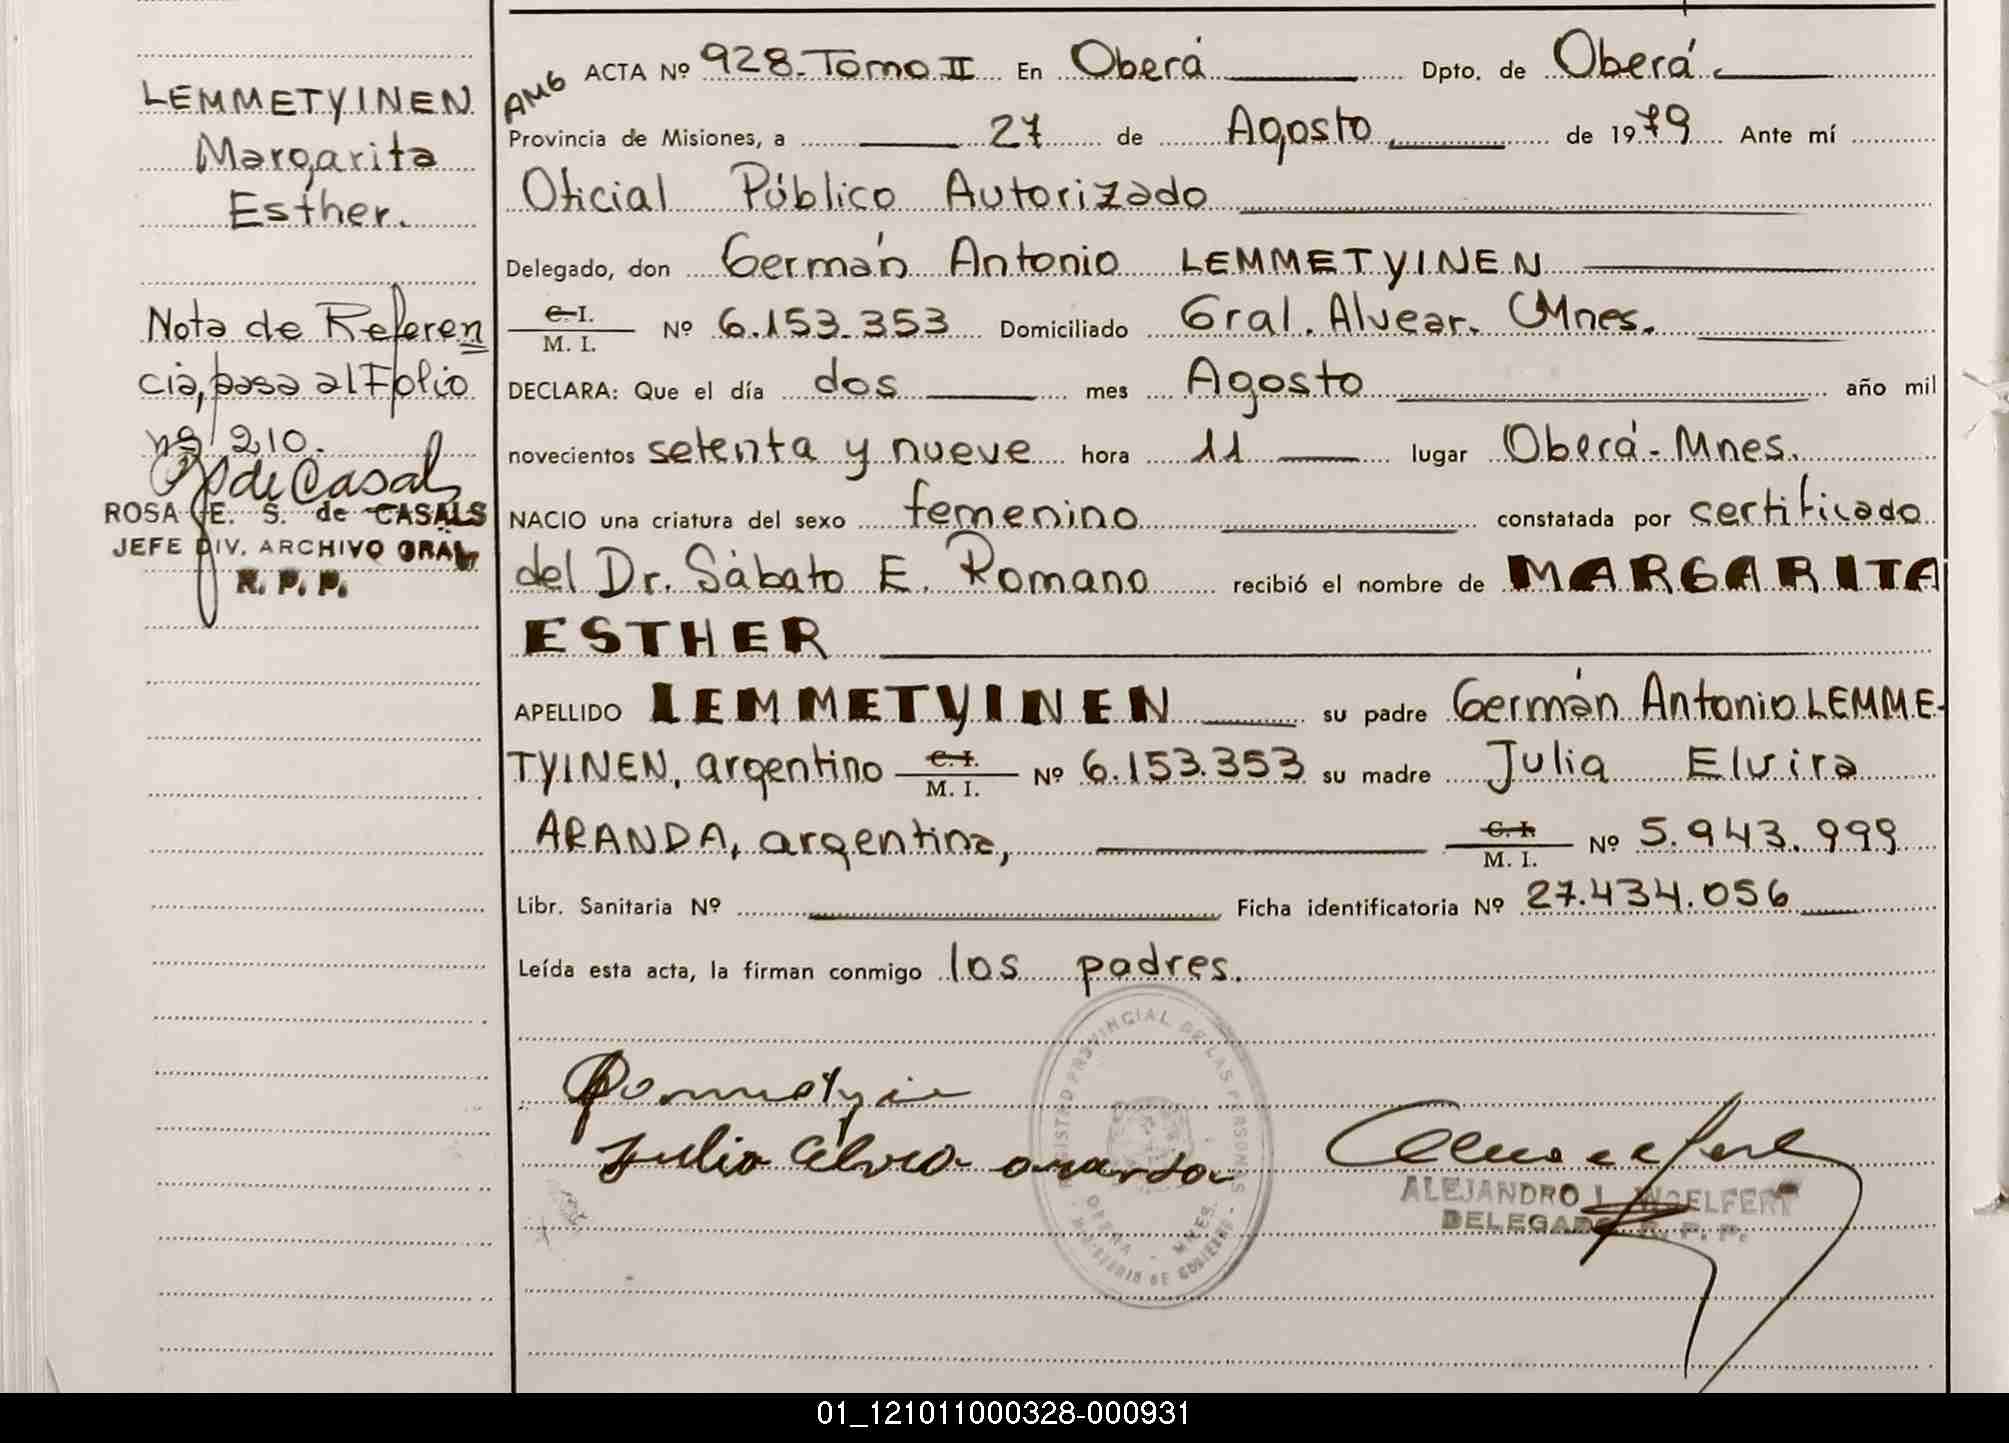 LEMMETYINEN
Margarita
Esther.
Nota de Referen
cia, pasa al Folio
nº 210.
de Casals
ROSA E. S. de CASALS
JEFE DIV. ARCHIVO GRAL
R. P. P.
AMG
ACTA Nº 928-Tomo II En Oberá Dpto. de Oberá
Provincia de Misiones, a 27 de Agosto de 1979 Ante mí
Oficial Público Autorizado
Delegado, don Germán Antonio LEMMETYINEN
C. I.
M. I. Nº 6.153.353 Domiciliado Gral. Alvear. Mnes.
DECLARA: Que el día dos mes Agosto año mil
novecientos setenta y nueve hora 11 lugar Oberá-Mnes.
NACIO una criatura del sexo femenino constatada por certificado
del Dr. Sábato E. Romano recibió el nombre de MARGARITA
ESTHER
APELLIDO LEMMETYINEN su padre Germán Antonio LEMME-
TYINEN, argentino C. I. M. I. Nº 6.153.353 su madre Julia Elvira
ARANDA, argentina, C. I. M. I. Nº 5.943.999
Libr. Sanitaria Nº Ficha identificatoria Nº 27.434.056
Leída esta acta, la firman conmigo los padres.
REGISTRO PROVINCIAL DE LAS PERSONAS
OBERA - MNES.
MINISTERIO DE GOBIERNO
Julia Elvira aranda
ALEJANDRO L. WOELFERT
DELEGADO R. P. P.
01_121011000328-000931